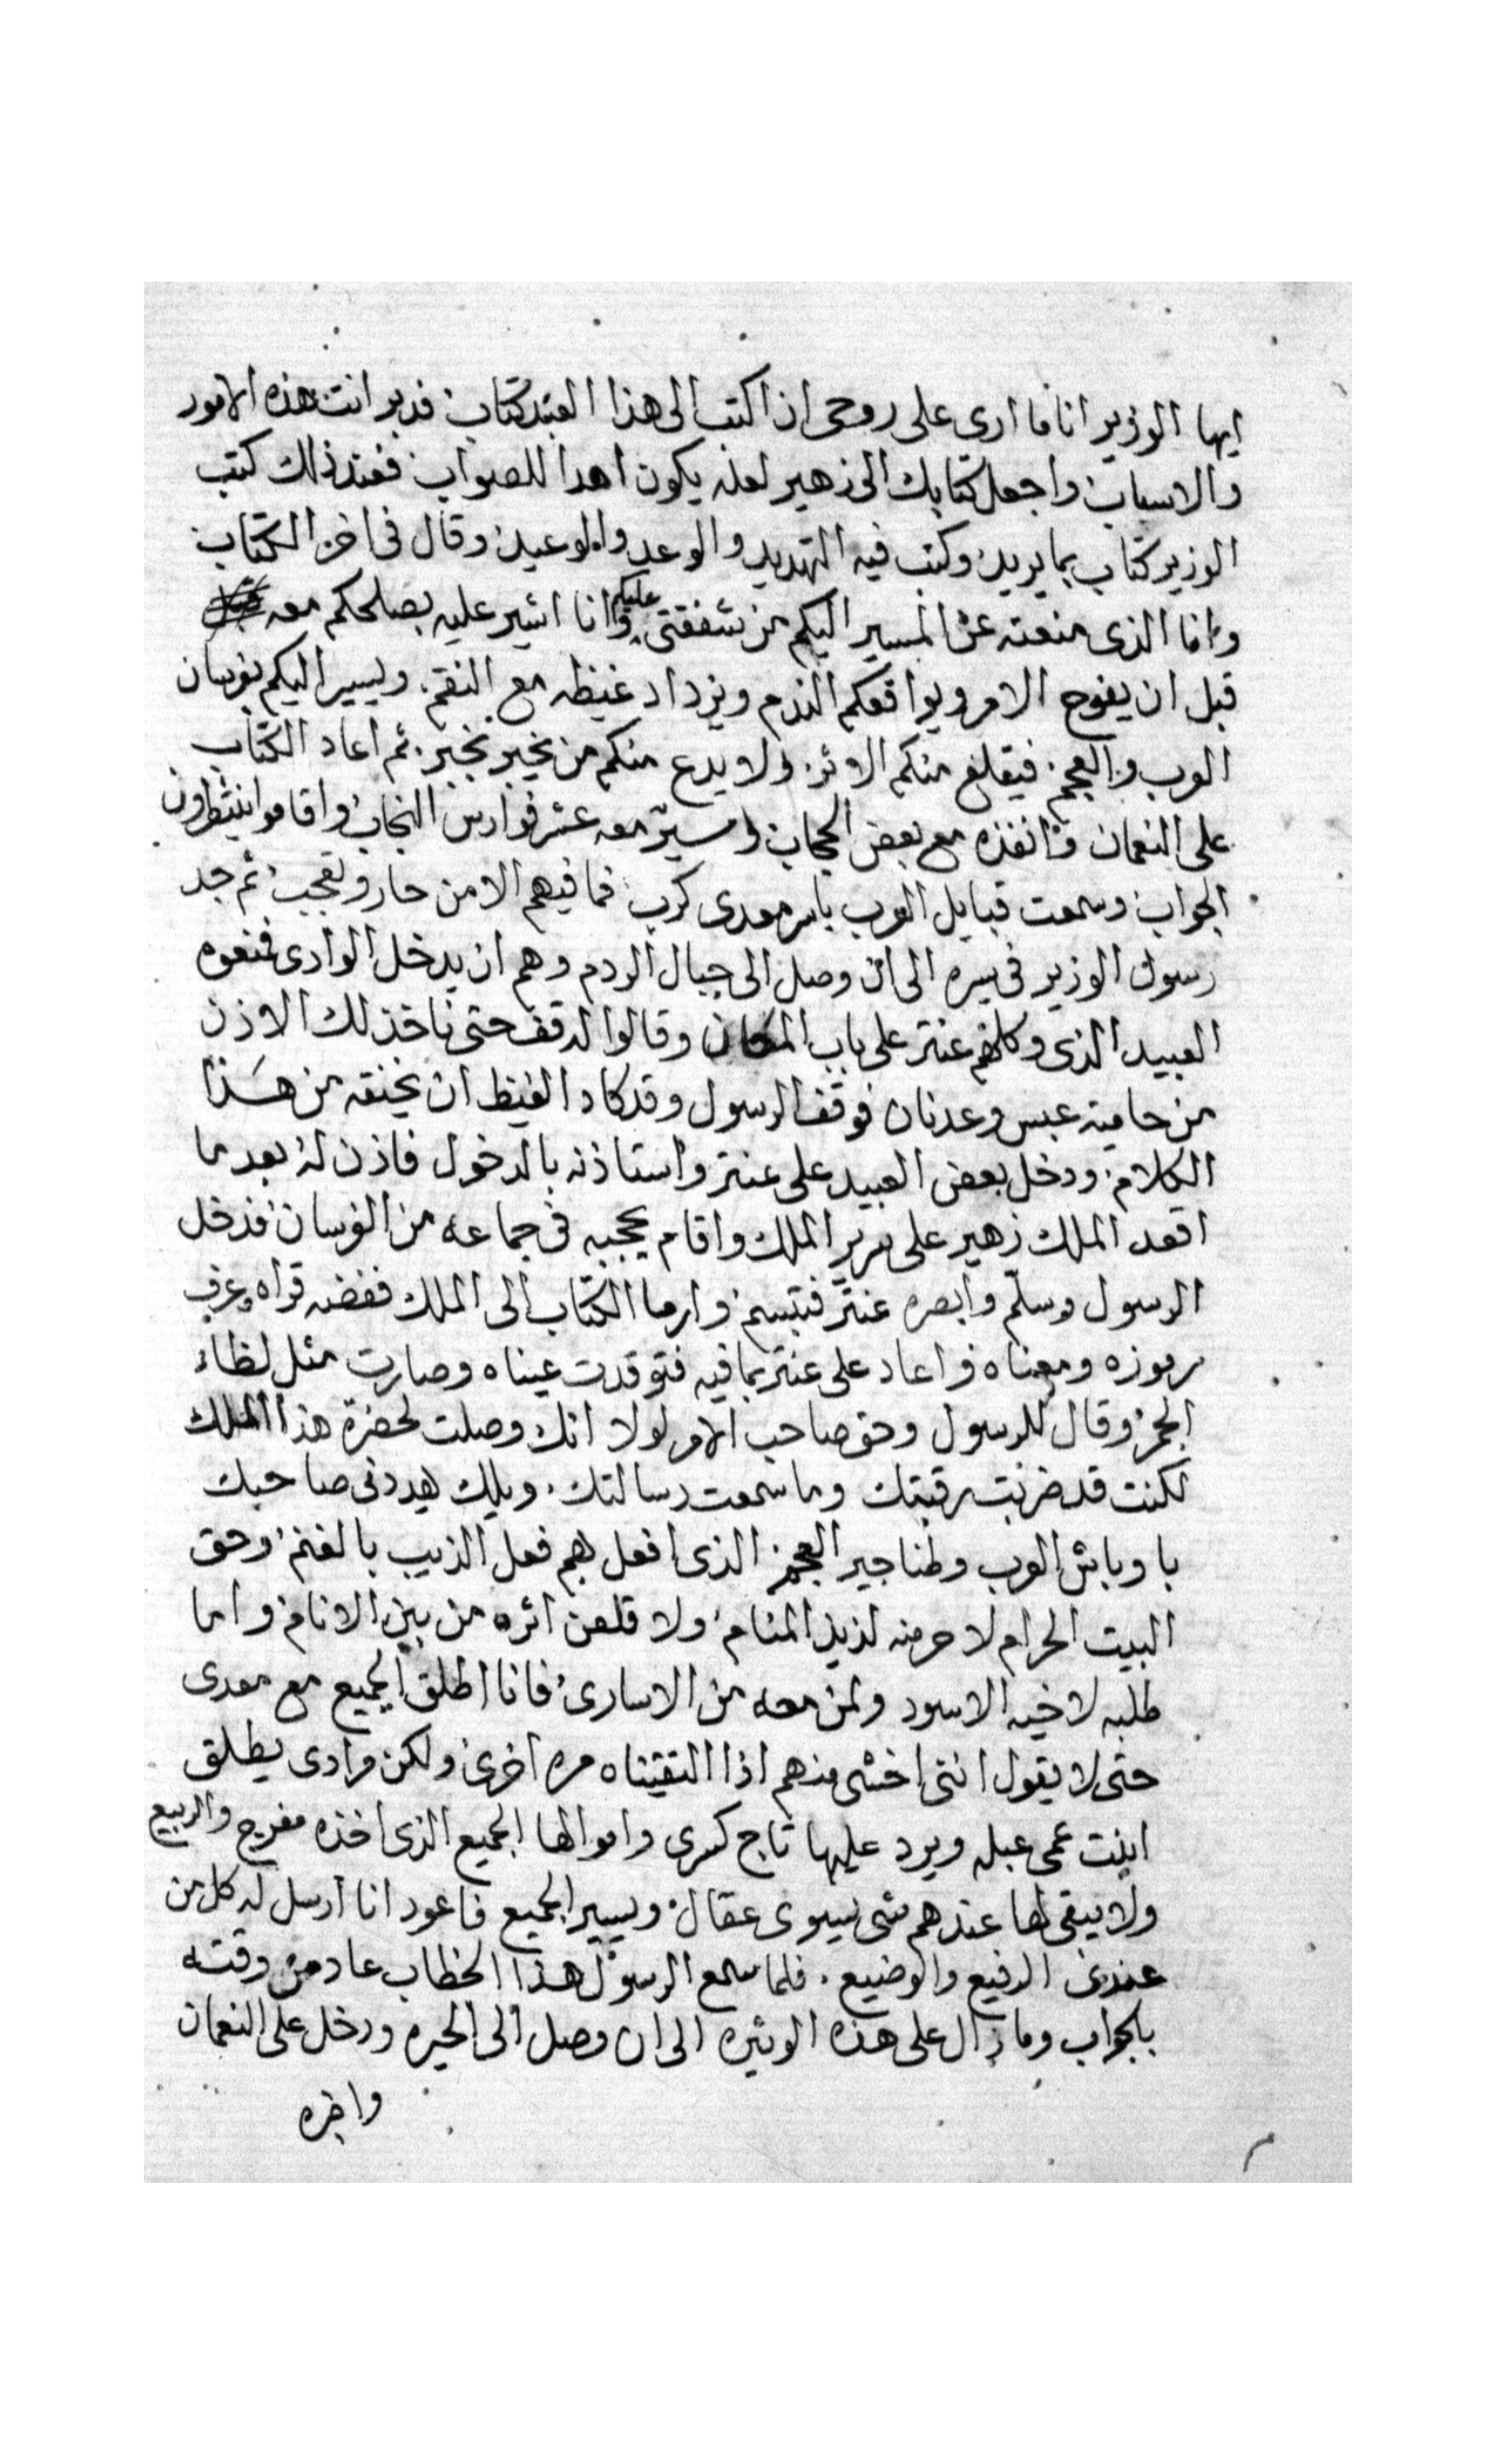 ايها الوزير انا ما ارى على روحى ان اكتب الى هذا العبد كتاب فدبر انت هذه الامور
والاسباب واجعل كتابك الى زهير لعله يكون اهدا للصواب فعند ذلك كتب
الوزير كتاب بما يريد وكتب فيه التهديد والوعد والوعيد وقال فى اخر الكتاب
وانا الذى منعته عن المسير اليكم من شفقتى عليكم وانا اشير عليه بصلحكم معه
قبل ان يفوح الامر ويواقعكم الندم ويزداد غيظه مع النقم ويسير اليكم بفرسان
العرب والعجم فيقلع منكم الاثر ولا يدع منكم من يخبر بخبر ثم اعاد الكتاب
على النعمان وانفذه مع بعض الحجاب وسير معه عشر فوارس انجاب واقاموا ينتظرون
الجواب وسمعت قبايل العرب باسر معدى كرب فما فيهم الا من حار وتعجب ثم جد
رسول الوزير فى سيره الى ان وصل الى جبال الردم وهم ان يدخل الوادى فمنعوه
العبيد الذى وكلهم عنتر على باب المكان وقالوا له قف حتى ناخذ لك الاذن
من حامية عبس وعدنان فوقف الرسول وقد كاد الغيظ ان يخنقه من هذا
الكلام ودخل بعض العبيد على عنتر واستاذنه بالدخول فاذن له بعد ما
اقعد الملك زهير على سرير الملك واقام يحجبه فى جماعه من الفرسان فدخل
الرسول وسلم وابصره عنتر فتبسم وارما الكتاب الى الملك ففضه قراه وعرف
رموزه ومعناه واعاد على عنتر بما فيه فتوقدت عيناه وصارت مثل لظاء
الجمر وقال للرسول وحق صاحب الامر لولا انك وصلت لحضرة هذا الملك
لكنت قد ضربت رقبتك وما سمعت رسالتك ويلك يهددنى صاحبك
باوباش العرب وطناجير العجم الذى افعل بهم فعل الذيب بالغنم وحق
البيت الحرام لاحرمنه لذيذ المنام ولاقلعن اثره من بين الانام واما
طلبه لاخيه الاسود ولمن معه من الاسارى فانا اطلق الجميع مع معدى
حتى لا يقول اننى اخشى منهم اذا التقيناه مره اخرى ولكن مرادى يطلق
ابنت عمى عبله ويرد عليها تاج كسرى واموالها الجميع الذى اخذه مفرج والربيع
ولا يبقى لها عندهم شى سوى عقال ويسير الجميع فاعود انا ارسل له كل من
عندى الرفيع والوضيع فلما سمع الرسول هذا الخطاب عاد من وقته
بالجواب وما زال على هذه الوتيره الى ان وصل الى الحيره ودخل على النعمان
واخبره